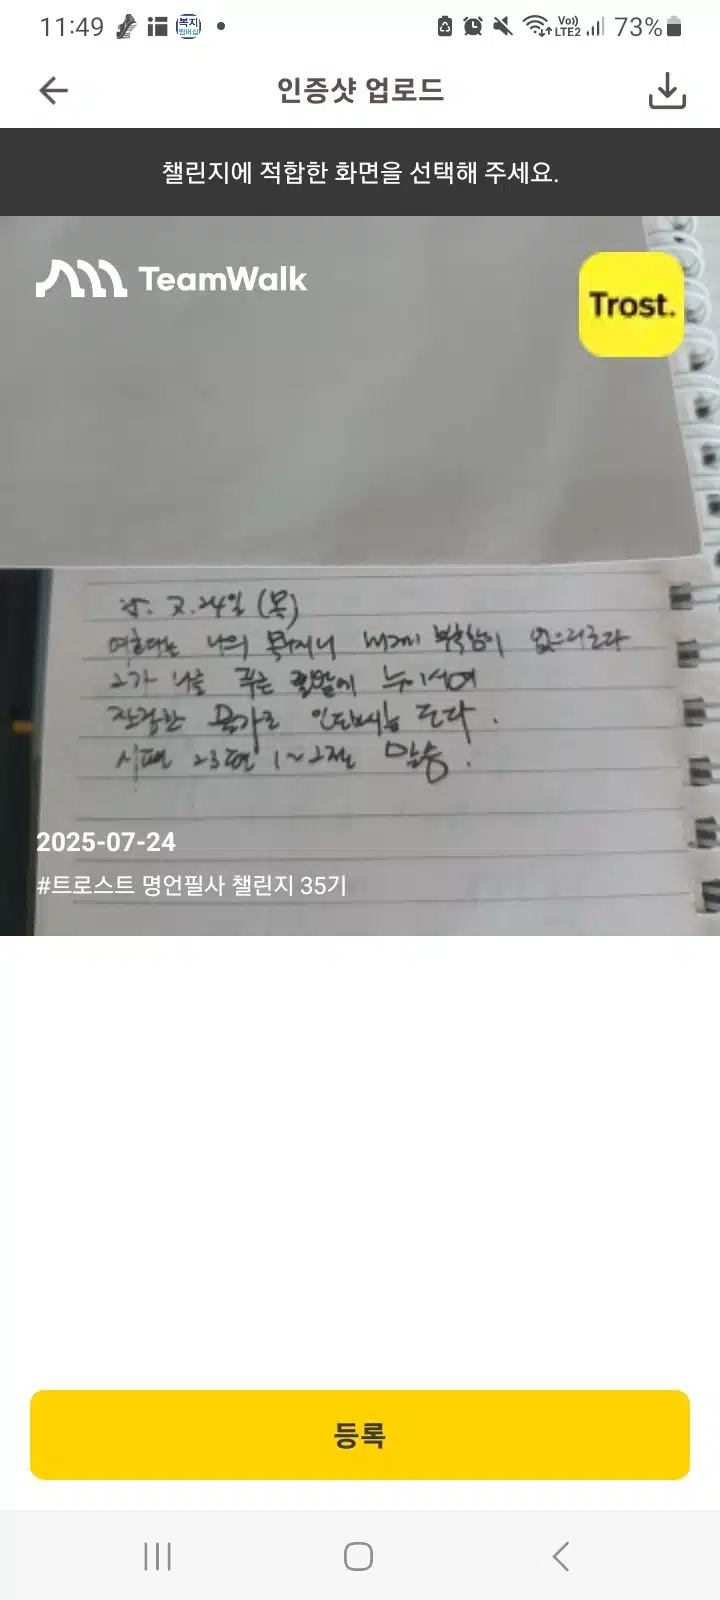 11:49
복지
멤버십
Vo))
LTE2
73%
인증샷 업로드
챌린지에 적합한 화면을 선택해 주세요.
TeamWalk
Trost.
25. 7. 24일 (목)
여호와는 나의 목자시니 내게 부족함이 없으리로다
그가 나를 푸른 풀밭에 누이시며
잔잔한 물가로 인도하시는 도다.
시편 23편 1~2절 말씀.
2025-07-24
#트로스트 명언필사 챌린지 35기
등록